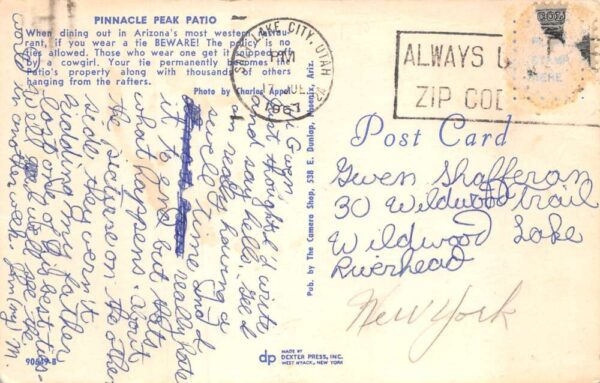 PINNACLE PEAK PATIO
When dining out in Arizona's most western restau-
rant, if you wear a tie BEWARE! The policy is no
ties allowed. Those who wear one get it snipped off
by a cowgirl. Your tie permanently becomes the
Patio's property along with thousands of others
hanging from the rafters.
Photo by Charles Appel
Hi Gwen,
Just thought I'd write
and say hello. Gee I
am really having a
swell time and
really hate
it to end but that's
what happens. About
the picture on the other
side they weren't
kidding my father
lost one of his best ties.
well see ya in
another week. Smiley M.
90649-B
Pub. by The Camera Shop, 538 E. Dunlap, Phoenix, Ariz.
SALT LAKE CITY, UTAH
PM
1967
ALWAYS U
ZIP COD
Post Card
Gwen Shafferan
30 Wildwood Trail
Wildwood Lake
Riverhead
New York
dp
MADE BY
DEXTER PRESS, INC.
WEST NYACK, NEW YORK